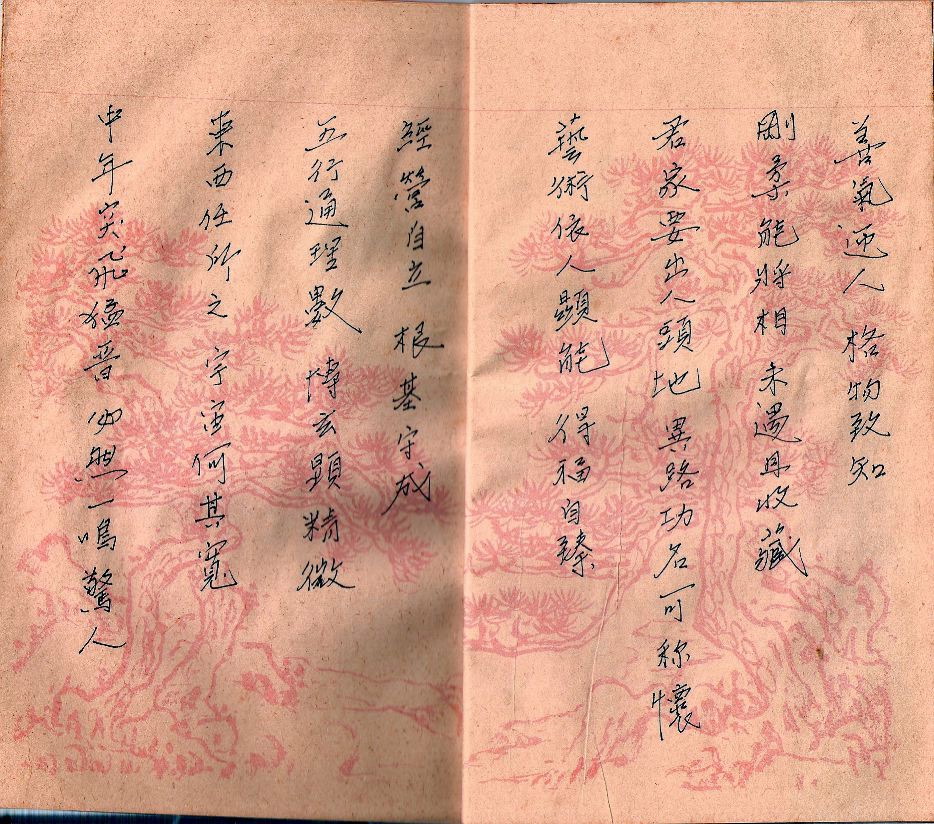 善氣迎人 格物致知
剛柔能將相 未遇且收藏
若家要出人頭地 異路功名可称懷
藝術依人顯能 得福自臻
經營自立 根基守成
五行通理數 博玄顯精微
東西任所之 宇宙何其寬
中年突飛猛晋 必然一鳴驚人